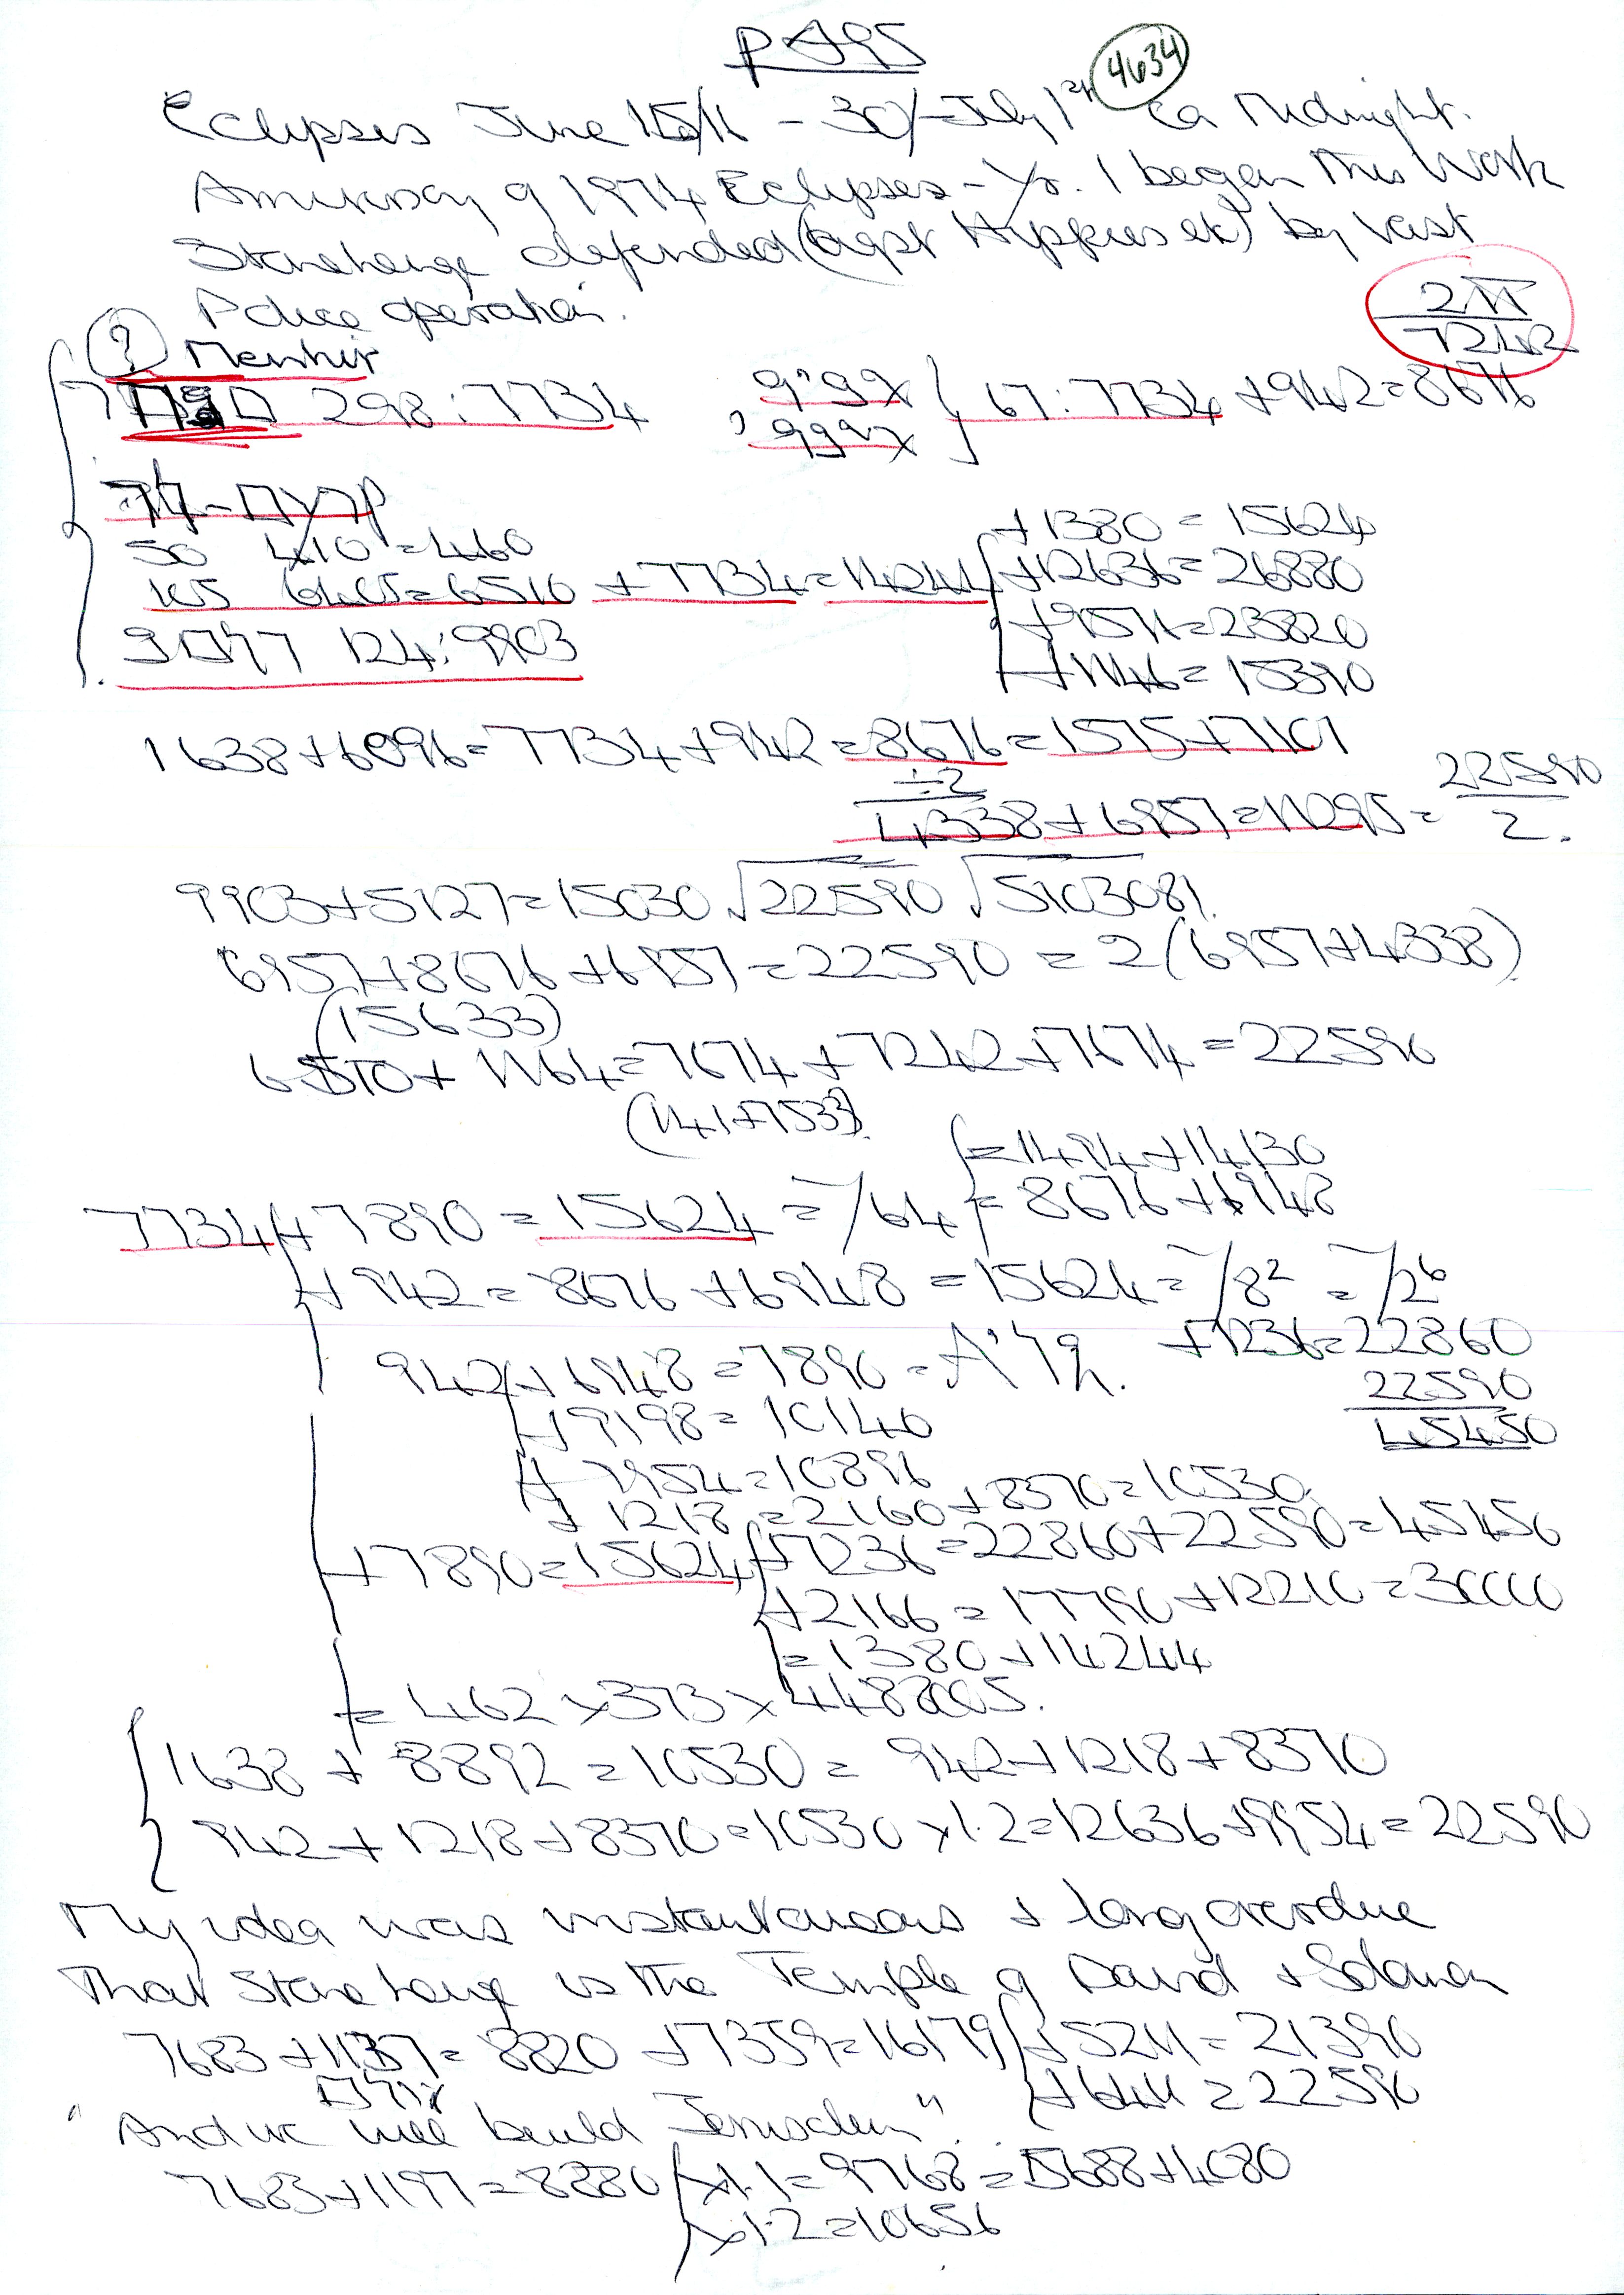 4634
Eclipses June 15/16 – 30/–July 1st ca Midnight.
of 1974 Eclipses – Yr. I began this Work
Stonehenge defended (agst Hippies etc) by vast
Police operation.
2π
7242
? Menhir
298 : 7734
67 : 7734 + 942 = 8676
50 410 = 460
+ 1380 = 15624
165 6465 = 6510 + 7734 = 14244
+ 12636 = 26880
+ 9576 = 23820
+ 1146 = 15390
124 : 9903
1638 + 6096 = 7734 + 942 = 8676 = 1575 + 7101
÷2
4338 + 6957 = 11295 = 22590
2.
9903 + 5127 = 15030 √22590 √5103081.
6957 + 8676 + 6957 = 22590 = 2(6957 + 4338)
(15633)
6510 + 1164 = 7674 + 7242 + 7674 = 22590
(141 + 7533).
= 1494 + 14130
7734 + 7890 = 15624 = ~/64 = 8676 + 6948
+ 942 = 8676 + 6948 = 15624 = ~/8² = ~/2⁶
+ 7236 = 22860
942 + 6948 = 7890
22590
45450
+ 9198 = 10140
+ 9954 = 10896
+ 1218 = 2160 + 8370 = 10530.
+ 7890 = 15624 + 7236 = 22860 + 22590 = 45450
+ 2166 = 17790 + 12210 = 30000
= 1380 + 14244
= 462 × 373 ×
1638 + 8892 = 10530 = 942 + 1218 + 8370
942 + 1218 + 8370 = 10530 × 1.2 = 12636 + 9954 = 22590
My idea was instantaneous & long overdue
That Stonehenge is the Temple of David & Solomon
7683 + 1137 = 8820 + 7359 = 16179 + 5211 = 21390
+ 6411 = 22590
"And we will build Jerusalem".
7683 + 1197 = 8880 × 1.1 = 9768 = 5688 + 4080
× 1.2 = 10656